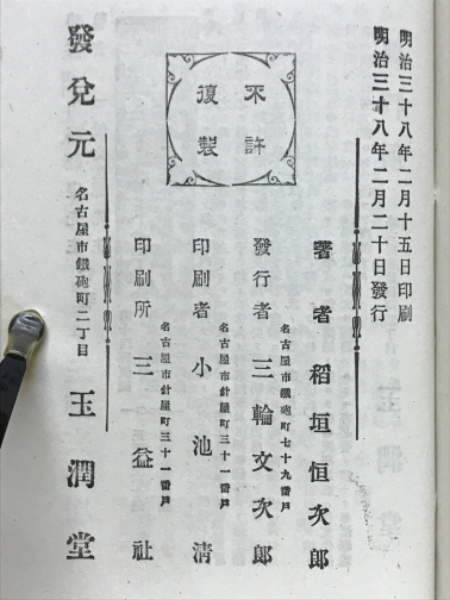 明治三十八年二月十五日印刷
明治三十八年二月二十日發行
不許
復製
著者 稻垣恒次郎
名古屋市鐵砲町七十九番戶
發行者 三輪文次郎
名古屋市針屋町三十一番戶
印刷者 小池清
名古屋市針屋町三十一番戶
印刷所 三益社
發兌元 名古屋市鐵砲町二丁目 玉潤堂